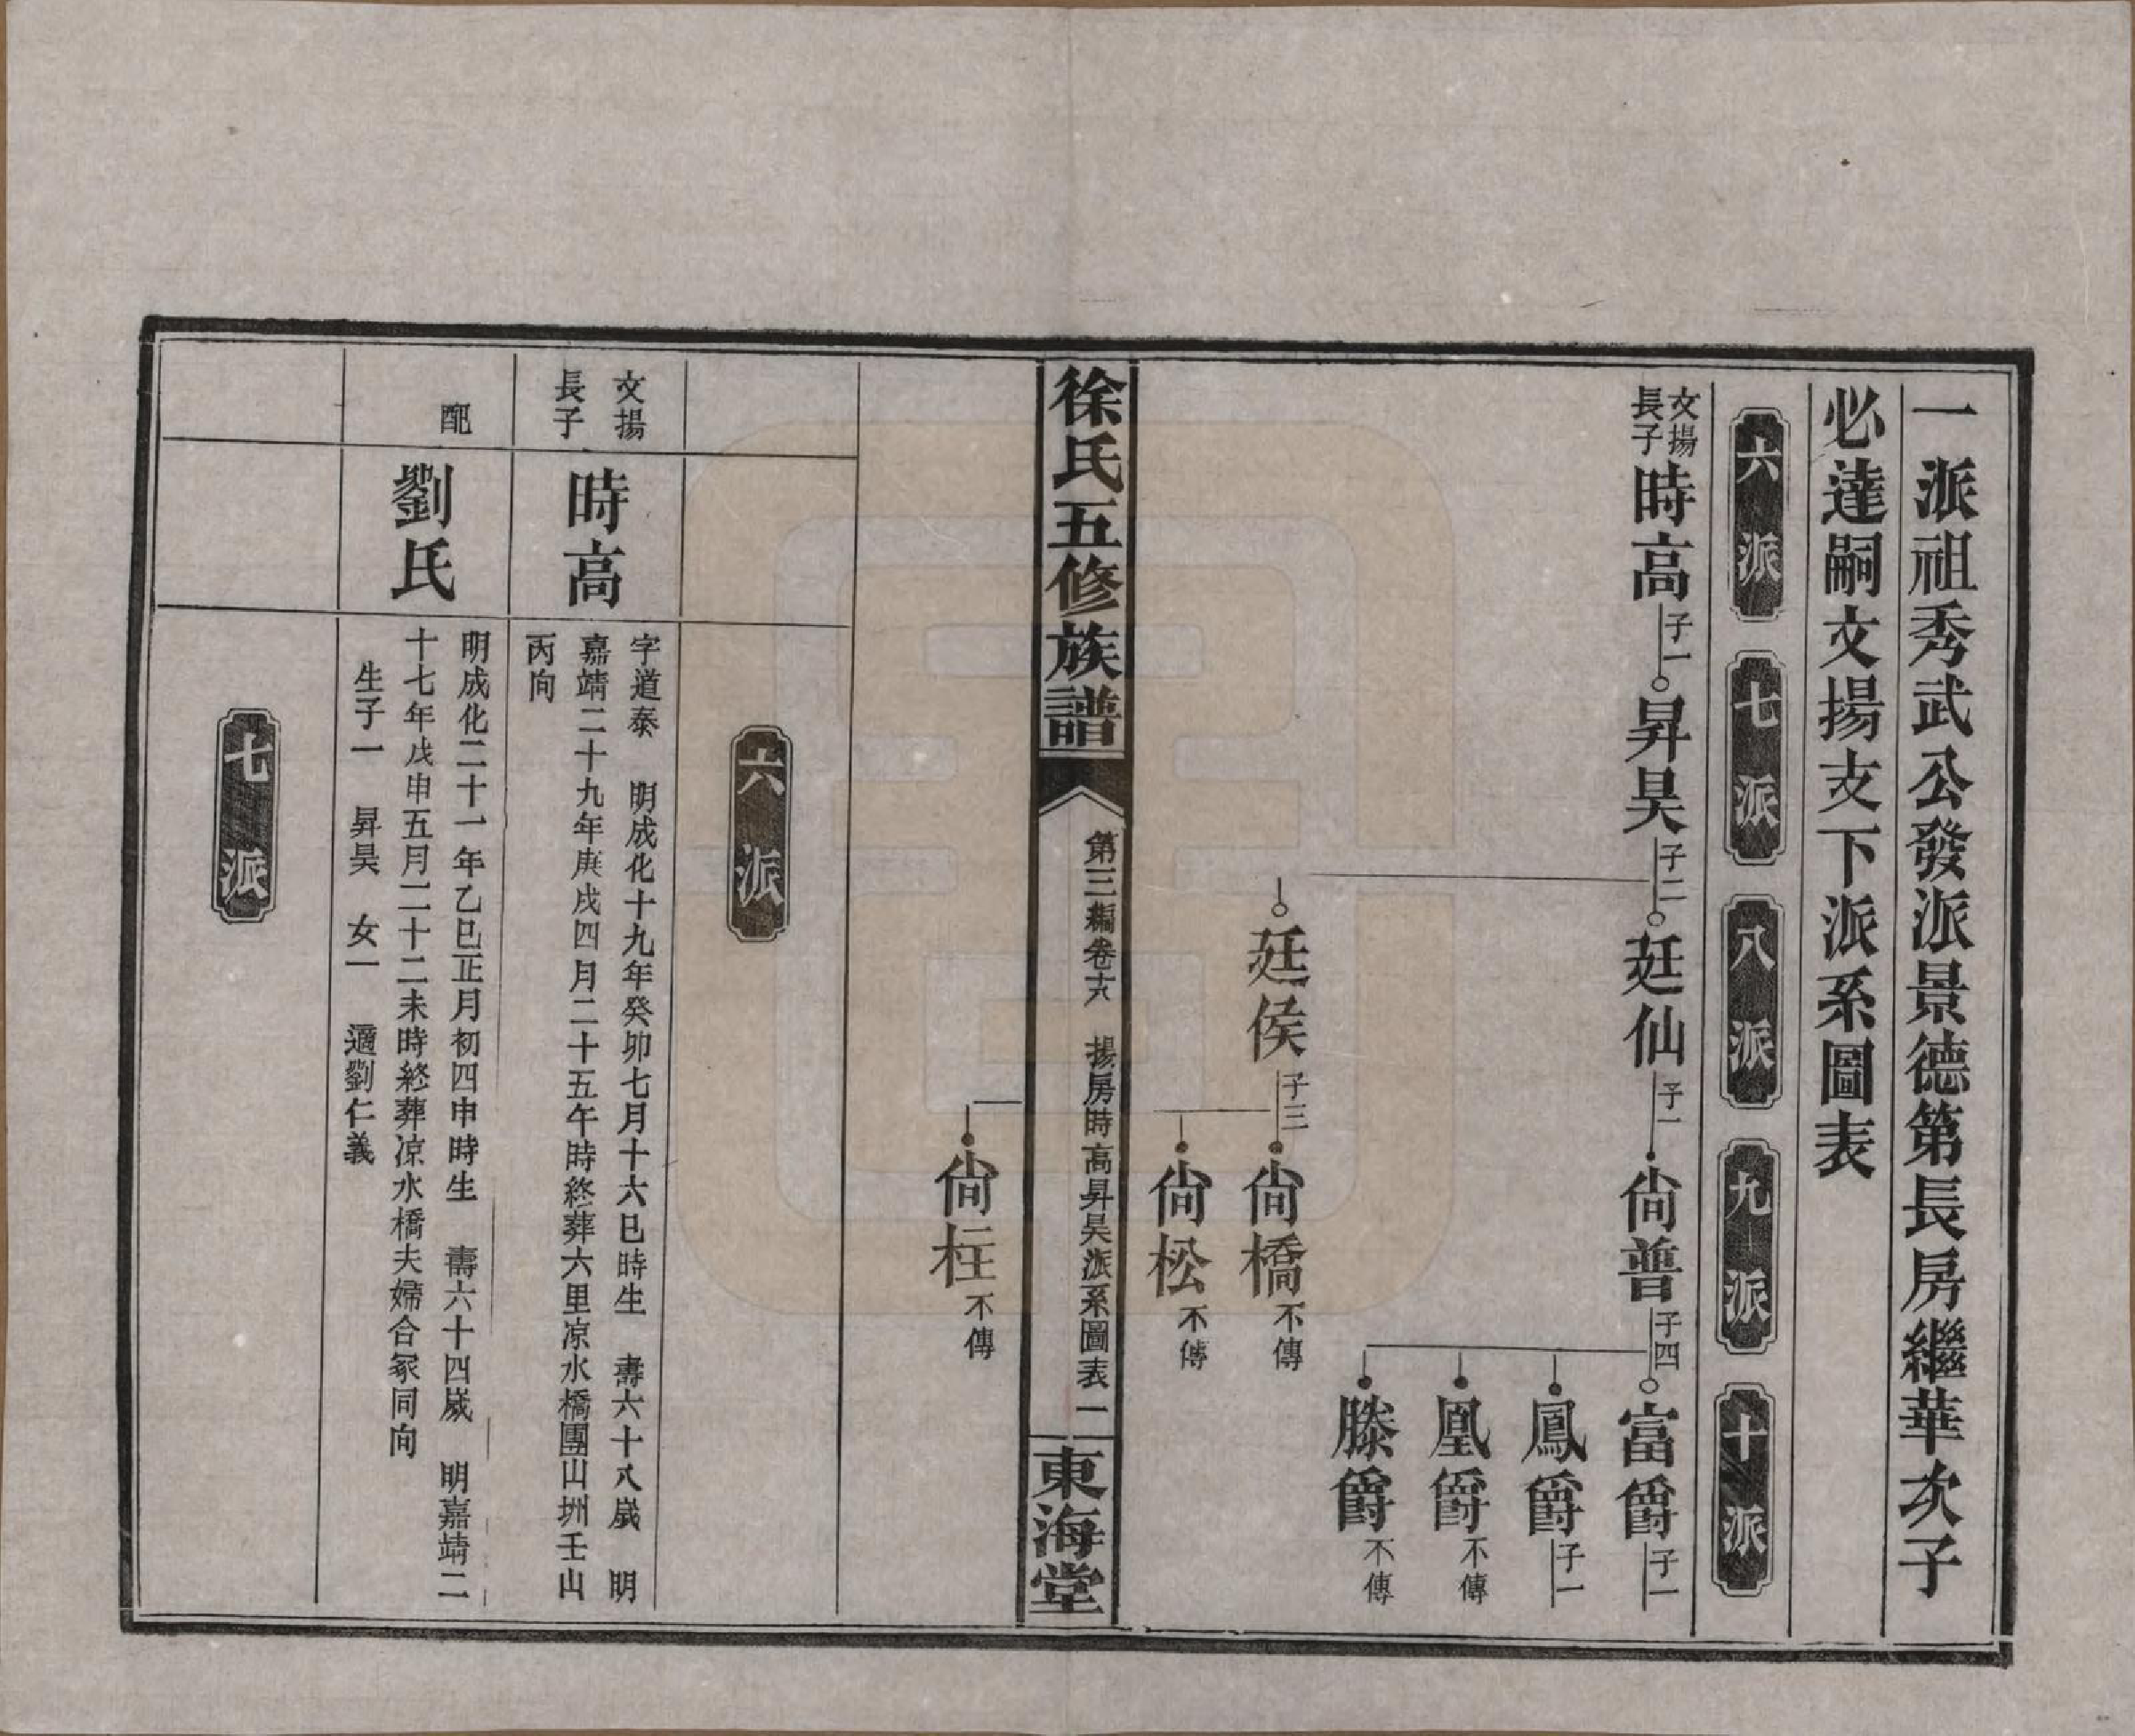 一派祖秀武公發派景德第長房繼華次子
必達嗣文揚支下派系圖表
六派
七派
八派
九派
十派
文揚
長子
時高
子一
昇昊
子二
廷仙
子一
尙普
子四
富爵
子一
鳳爵
子一
凰爵
不傳
滕爵
不傳
廷侯
子三
尙橋
不傳
尙松
不傳
徐氏五修族譜
第三編卷十六 揚房時高昇昊派系圖表
二
東海堂
尙柱
不傳
六派
文揚
長子
時高
字道泰 明成化十九年癸卯七月十六巳時生 壽六十八歲 明
嘉靖二十九年庚戌四月二十五午時終葬六里凉水橋團山圳壬山
丙向
配
劉氏
明成化二十一年乙巳正月初四申時生 壽六十四歲 明嘉靖二
十七年戊申五月二十二未時終葬凉水橋夫婦合冢同向
生子一 昇昊 女一 適劉仁義
七派